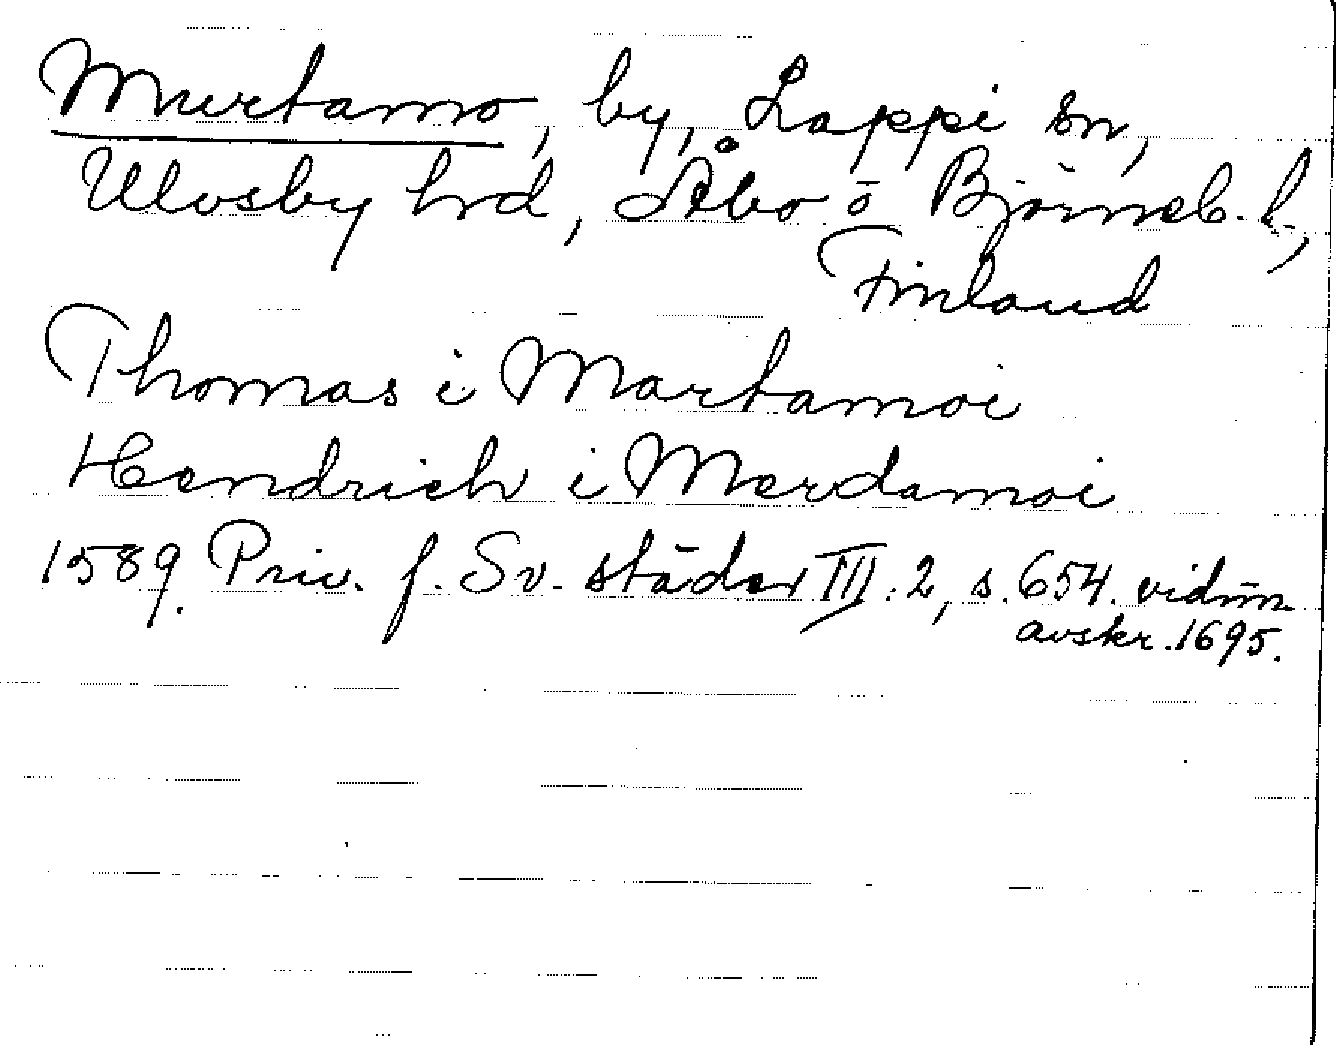 Murtamo, by, Lappi sn,
Ulvsby hrd, Åbo o Björneb. l,
Finland
Thomas i Martamoi
Hendrich i Merdamoi
1589. Priv. f. Sv. städer III:2, s. 654. vidim.
avskr. 1695.